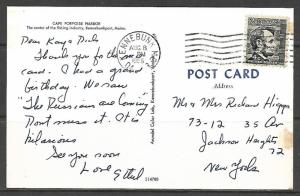 CAPE PORPOISE HARBOR
The center of the fishing industry, Kennebunkport, Maine.
Dear Kay & Dick
Thank you for the
card. I had a grand
birthday. We saw
"The Russians are Coming"
Don't miss it. It is
hilarious
See you soon
Love
Ethel
114708
KENNEBUNK
AUG 8
PM
POST CARD
Address
Mr & Mrs Richard
73-12 35 Ave
Jackson Heights
72
New York